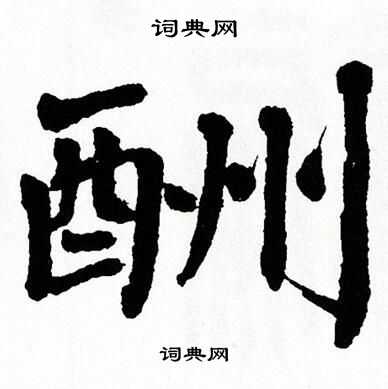 词典网
酬
词典网